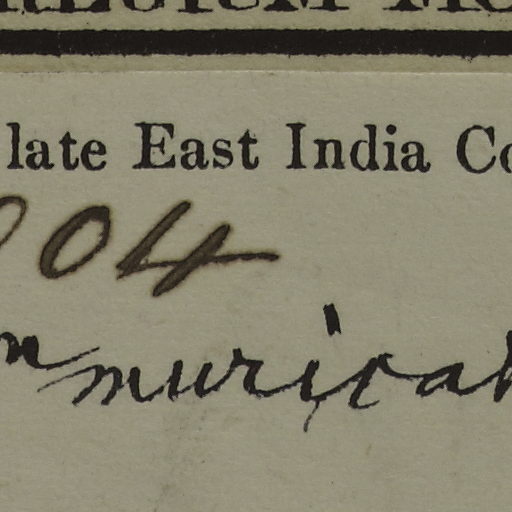 late East India Co
04
muricat